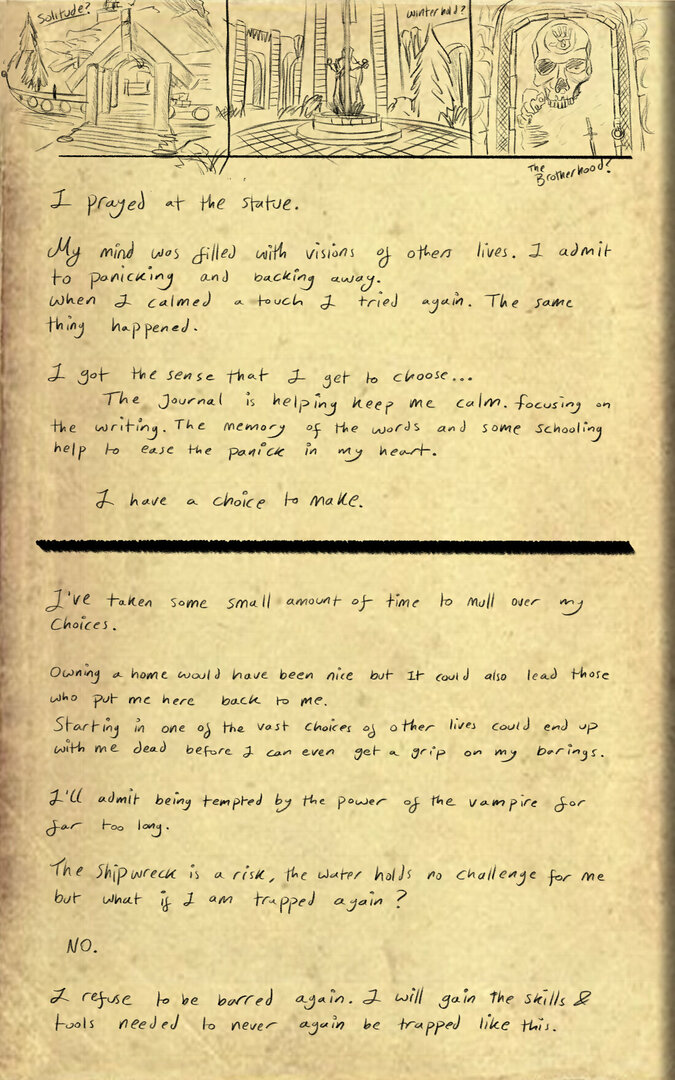 Solitude?
Winterhold?
The
Brotherhood?
I prayed at the statue.
My mind was filled with visions of others lives. I admit
to panicking and backing away.
When I calmed a touch I tried again. The same
thing happened.
I got the sense that I get to choose...
The Journal is helping keep me calm. focusing on
the writing. The memory of the words and some schooling
help to ease the panick in my heart.
I have a choice to make.
I've taken some small amount of time to mull over my
choices.
Owning a home would have been nice but It could also lead those
who put me here back to me.
Starting in one of the vast choices of other lives could end up
with me dead before I can even get a grip on my barings.
I'll admit being tempted by the power of the vampire for
far too long.
The Shipwreck is a risk, the water holds no challenge for me
but what if I am trapped again?
NO.
I refuse to be barred again. I will gain the skills &
tools needed to never again be trapped like this.